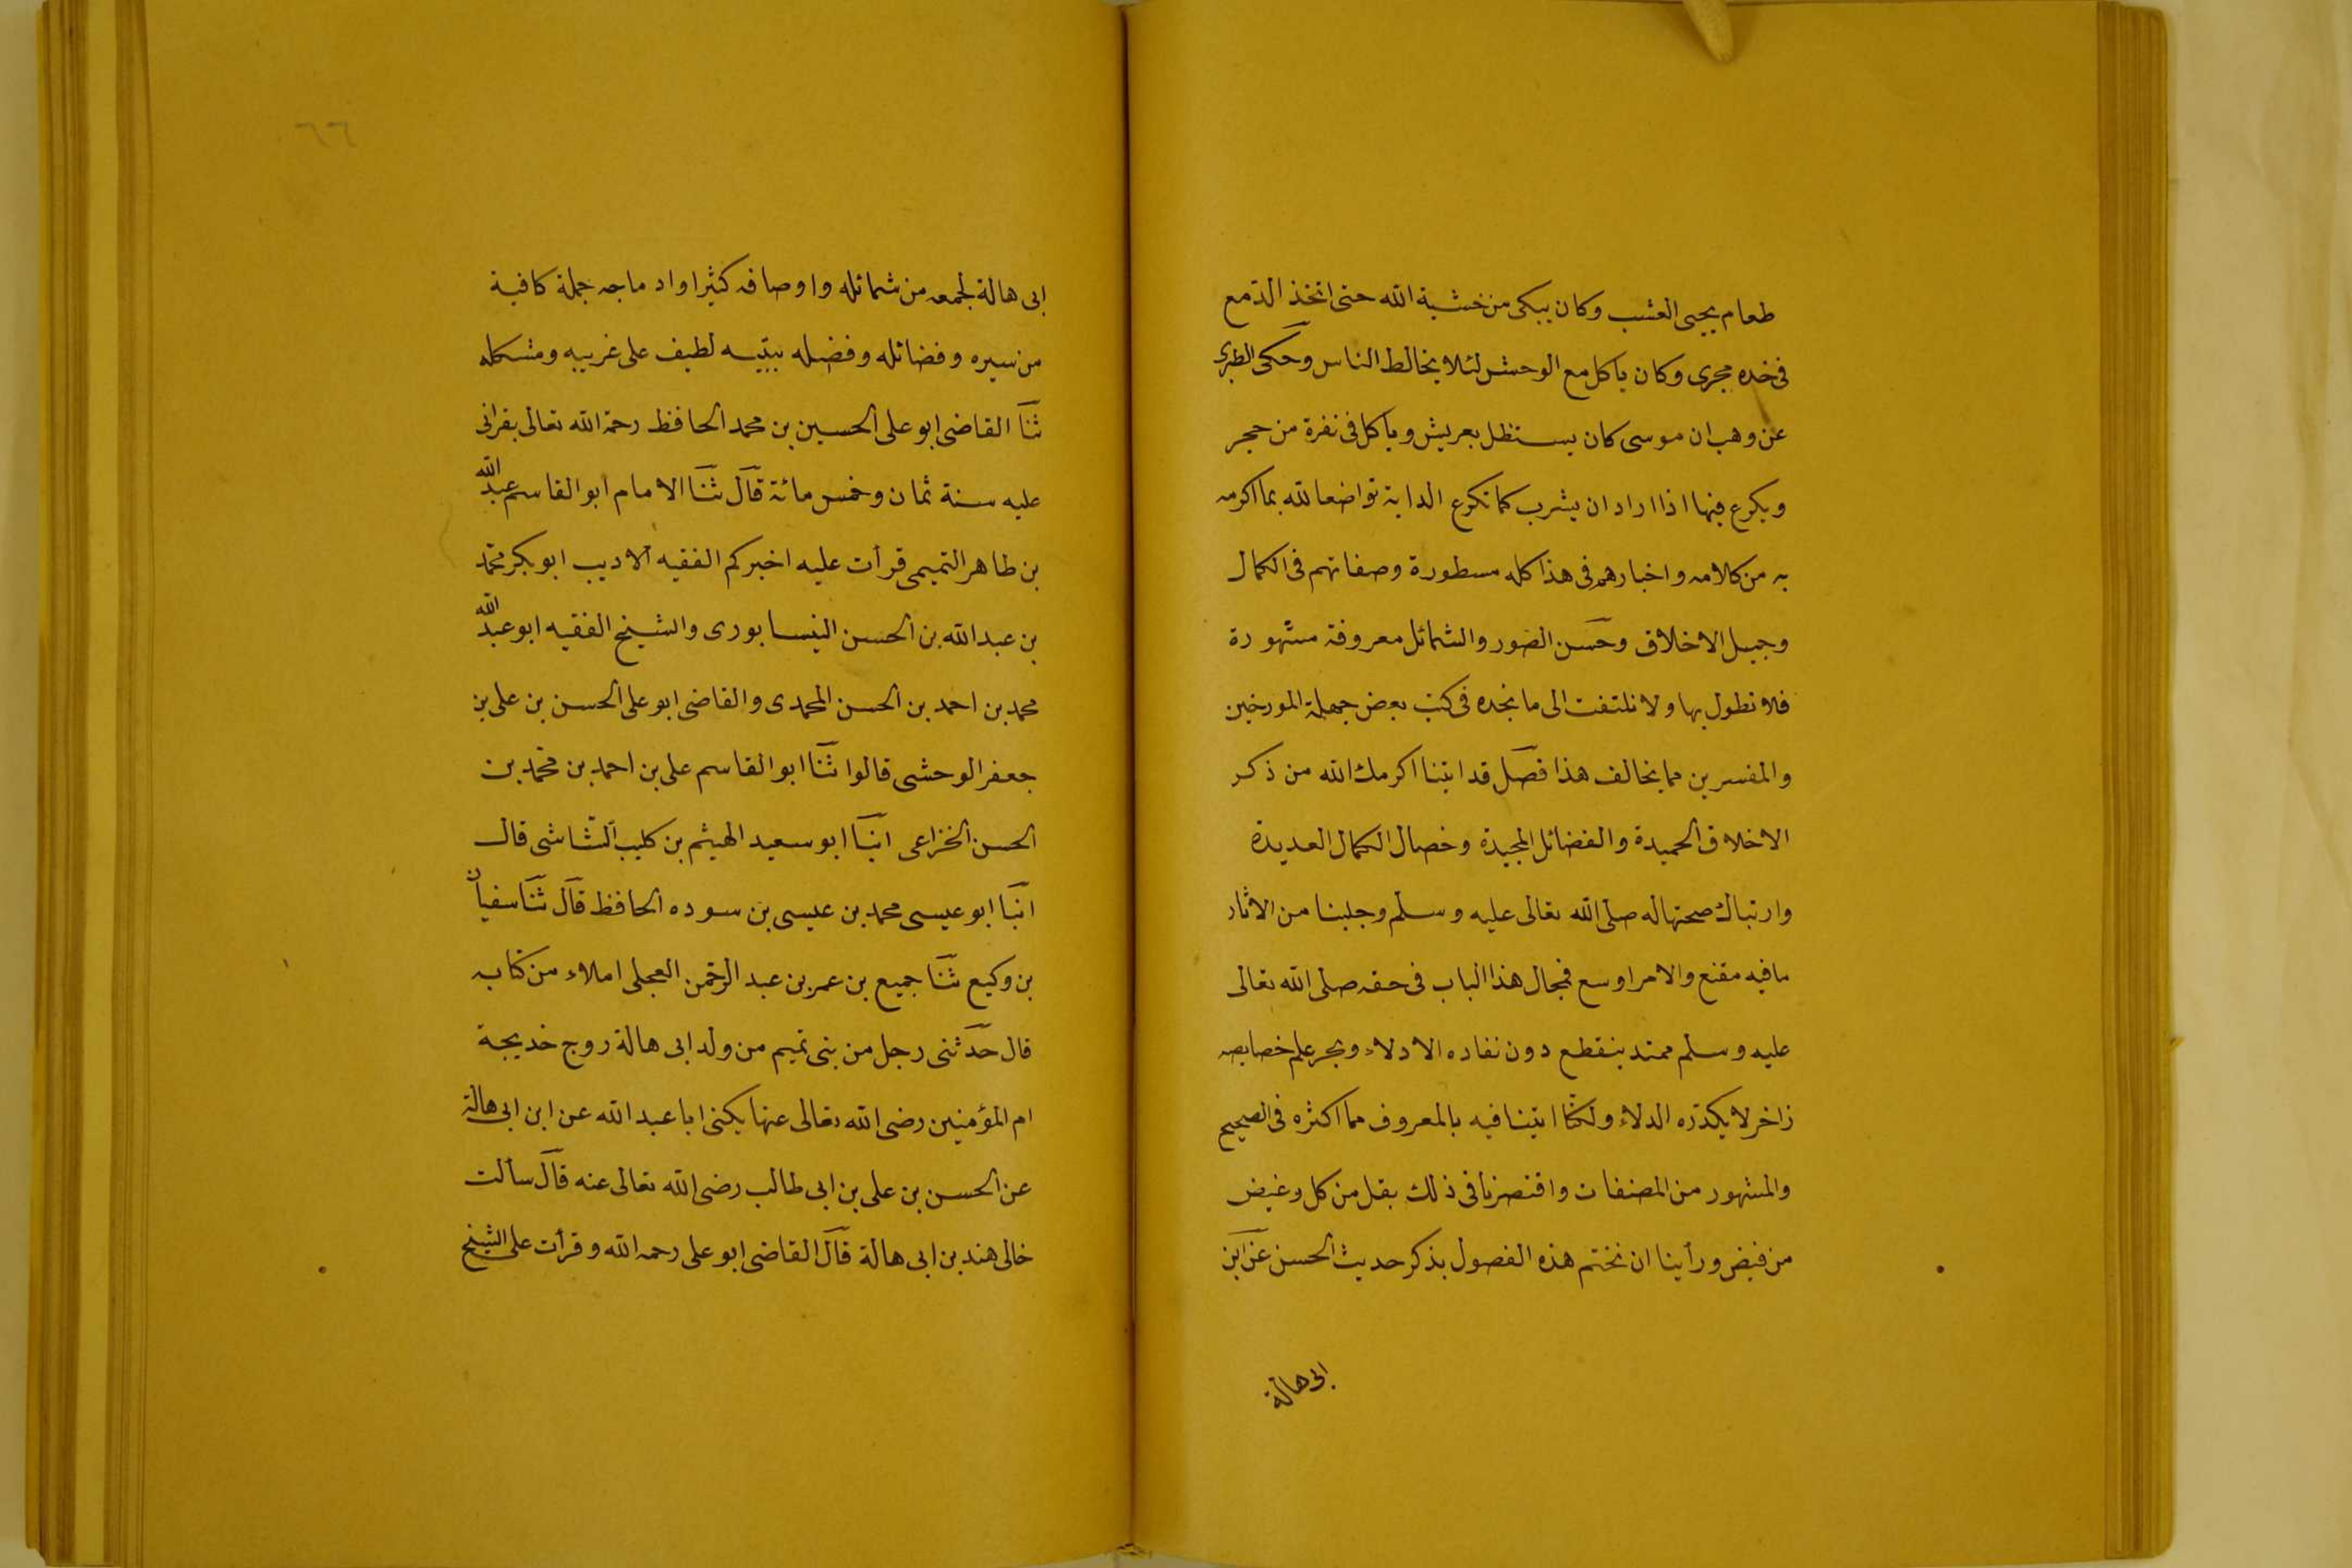 طعام يحيى العشب وكان يبكى من خشية الله حتى اتخذ الدّمع
فى خده مجرى وكان ياكل مع الوحش لئلا يخالط الناس وحكى الطبرى
عن وهب ان موسى كان يستظل بعريش وياكل فى نقرة من حجر
ويكرع فيها اذا اراد ان يشرب كما تكرع الدابة تواضعا لله بما اكرمه
به من كلامه واخبارهم فى هذا كله مسطورة وصفاتهم فى الكمال
وجميل الاخلاق وحسن الصور والشمائل معروفة مشهورة
فلا نطول بها ولا نلتفت الى ما نجده فى كتب بعض جهلة المورخين
والمفسرين مما يخالف هذا فصل قد اتينا اكرمك الله من ذكر
الاخلاق الحميدة والفضائل المجيدة وخصال الكمال العديدة
وارتباك صحتها له صلى الله تعالى عليه وسلم وجلبنا من الاثار
ما فيه مقنع والامر اوسع فمجال هذا الباب فى حقه صلى الله تعالى
عليه وسلم ممتد ينقطع دون نفاده الادلاء وبحر علم خصايصه
زاخر لا يكدّره الدلاء ولكنّا اتينا فيه بالمعروف مما اكثره فى الصحيح
والمشهور من المصنفات واقتصرنا فى ذلك بقل من كل وغيض
من فيض ورأينا ان نختم هذه الفصول بذكر حديث الحسن عن ابن
ابى هالة
٦٦
ابى هالة لجمعه من شمائله واوصافه كثيرا واد ماجه جملة كافية
من سيره وفضائله وفضله ببتيه لطيف على غريبه ومشكله
ثنا القاضى ابو على الحسين بن محمد الحافظ رحمة الله تعالى بقرانى
عليه سنة ثمان وخمس مائة قال ثنا الامام ابو القاسم عبد الله
بن طاهر التميمى قرأت عليه اخبركم الفقيه الاديب ابو بكر محمّد
بن عبد الله بن الحسن النيسابورى والشيخ الفقيه ابو عبد الله
محمد بن احمد بن الحسن المحمدى والقاضى ابو على الحسن بن على بن
جعفر الوحشى قالوا ثنا ابو القاسم على بن احمد بن محمّد بن
الحسن الخزاعى انبا ابو سعيد الهيثم بن كليب الشّاشى قال
انبا ابو عيسى محمد بن عيسى بن سوده الحافظ قال ثنا سفيان
بن وكيع ثنا جميع بن عمر بن عبد الرحمن العجلى املاء من كتابه
قال حدّثنى رجل من بنى تميم من ولد ابى هالة روج خديجة
ام المؤمنين رضى الله تعالى عنها يكنى ابا عبد الله عن ابن ابى هالة
عن الحسن بن على بن ابى طالب رضى الله تعالى عنه قال سألت
خالى هند بن ابى هالة قال القاضى ابو على رحمه الله وقرأت على الشيخ